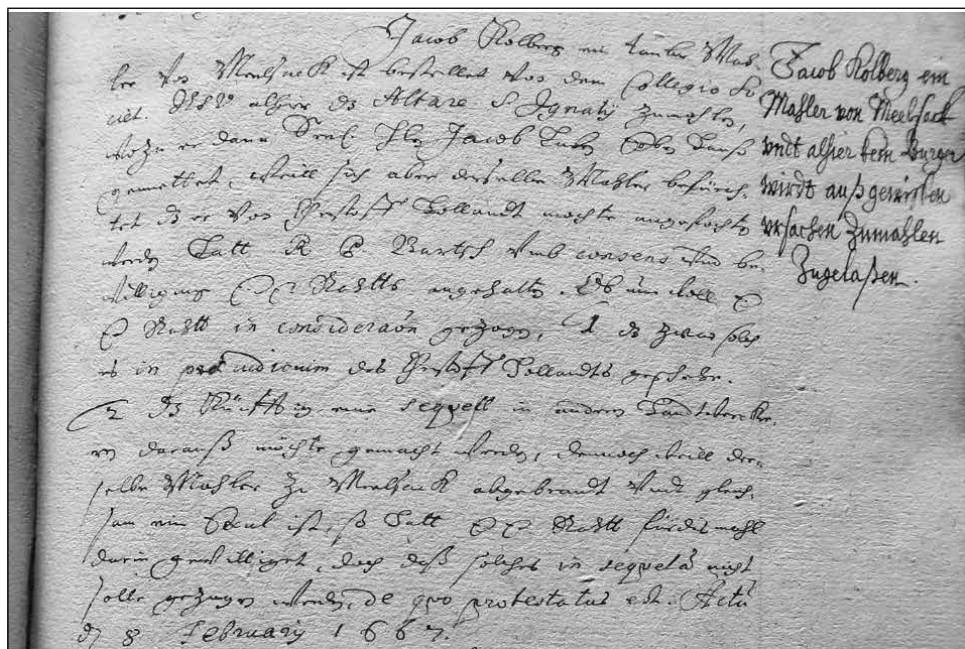 Jacob Kolberg ein kunber Mah-
ler von Meelsack ist bestellet von dem Collegio So
ciet. JESV alhier ds Altare S Ignatij zumahlen,
wozu er dann Jacob
gemettet, weill sich aber derselbe Mahler befürch-
tet ds er von Christoff Hollandt mochte angefochten
werden hatt R P Bartsch umb consens und be-
williging E E Rahtts angehalten. Ob nun woll E
E Rahtt in consideraōn gezogen, 1 ds zwar solch
es in præiudicium des Christoff Hollandts geschehe.
2 ds künfftig eine sequell in andern Handtwercke-
rn darauß möchte gemacht werden, dennoch weill der-
selbe Mahler zu Meelsack abgebrandt undt gleich-
sam ein Exul ist, so hatt E E Rahtt fürdismahl
darin gewilliget, doch daß solches in sequelā nicht
solle gezogen werden, de quo protestatus est. Actū
d 8 February 1667.
Jacob Kolberg ein
Mahler von Meelsack
undt alhier kein Burger
wirdt auß gewissen
ursachen Zumahlen
Zugelaßen.